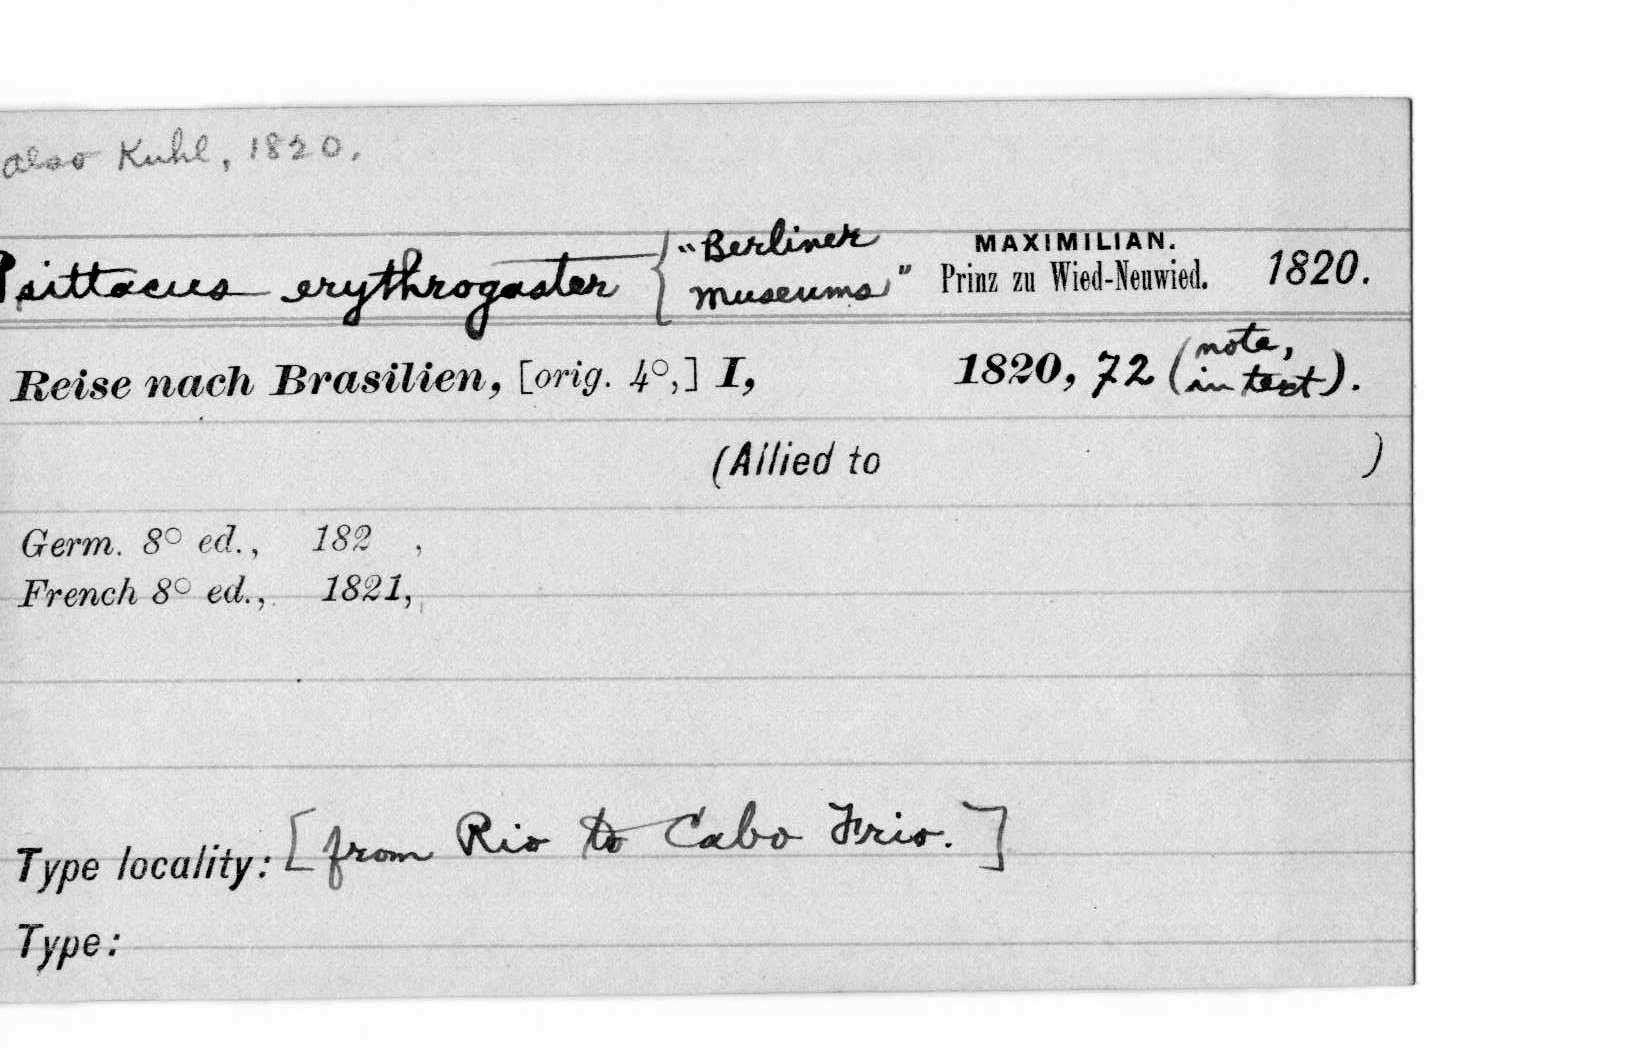 also Kuhl, 1820.
Psittacus erythrogaster { "Berliner Museums" MAXIMILIAN. Prinz zu Wied-Neuwied. 1820.
Reise nach Brasilien, [orig. 4°,] I, 1820, 72 (note, in text).
(Allied to )
Germ. 8° ed., 182 ,
French 8° ed., 1821,
Type locality: [from Rio to Cabo Frio.]
Type: